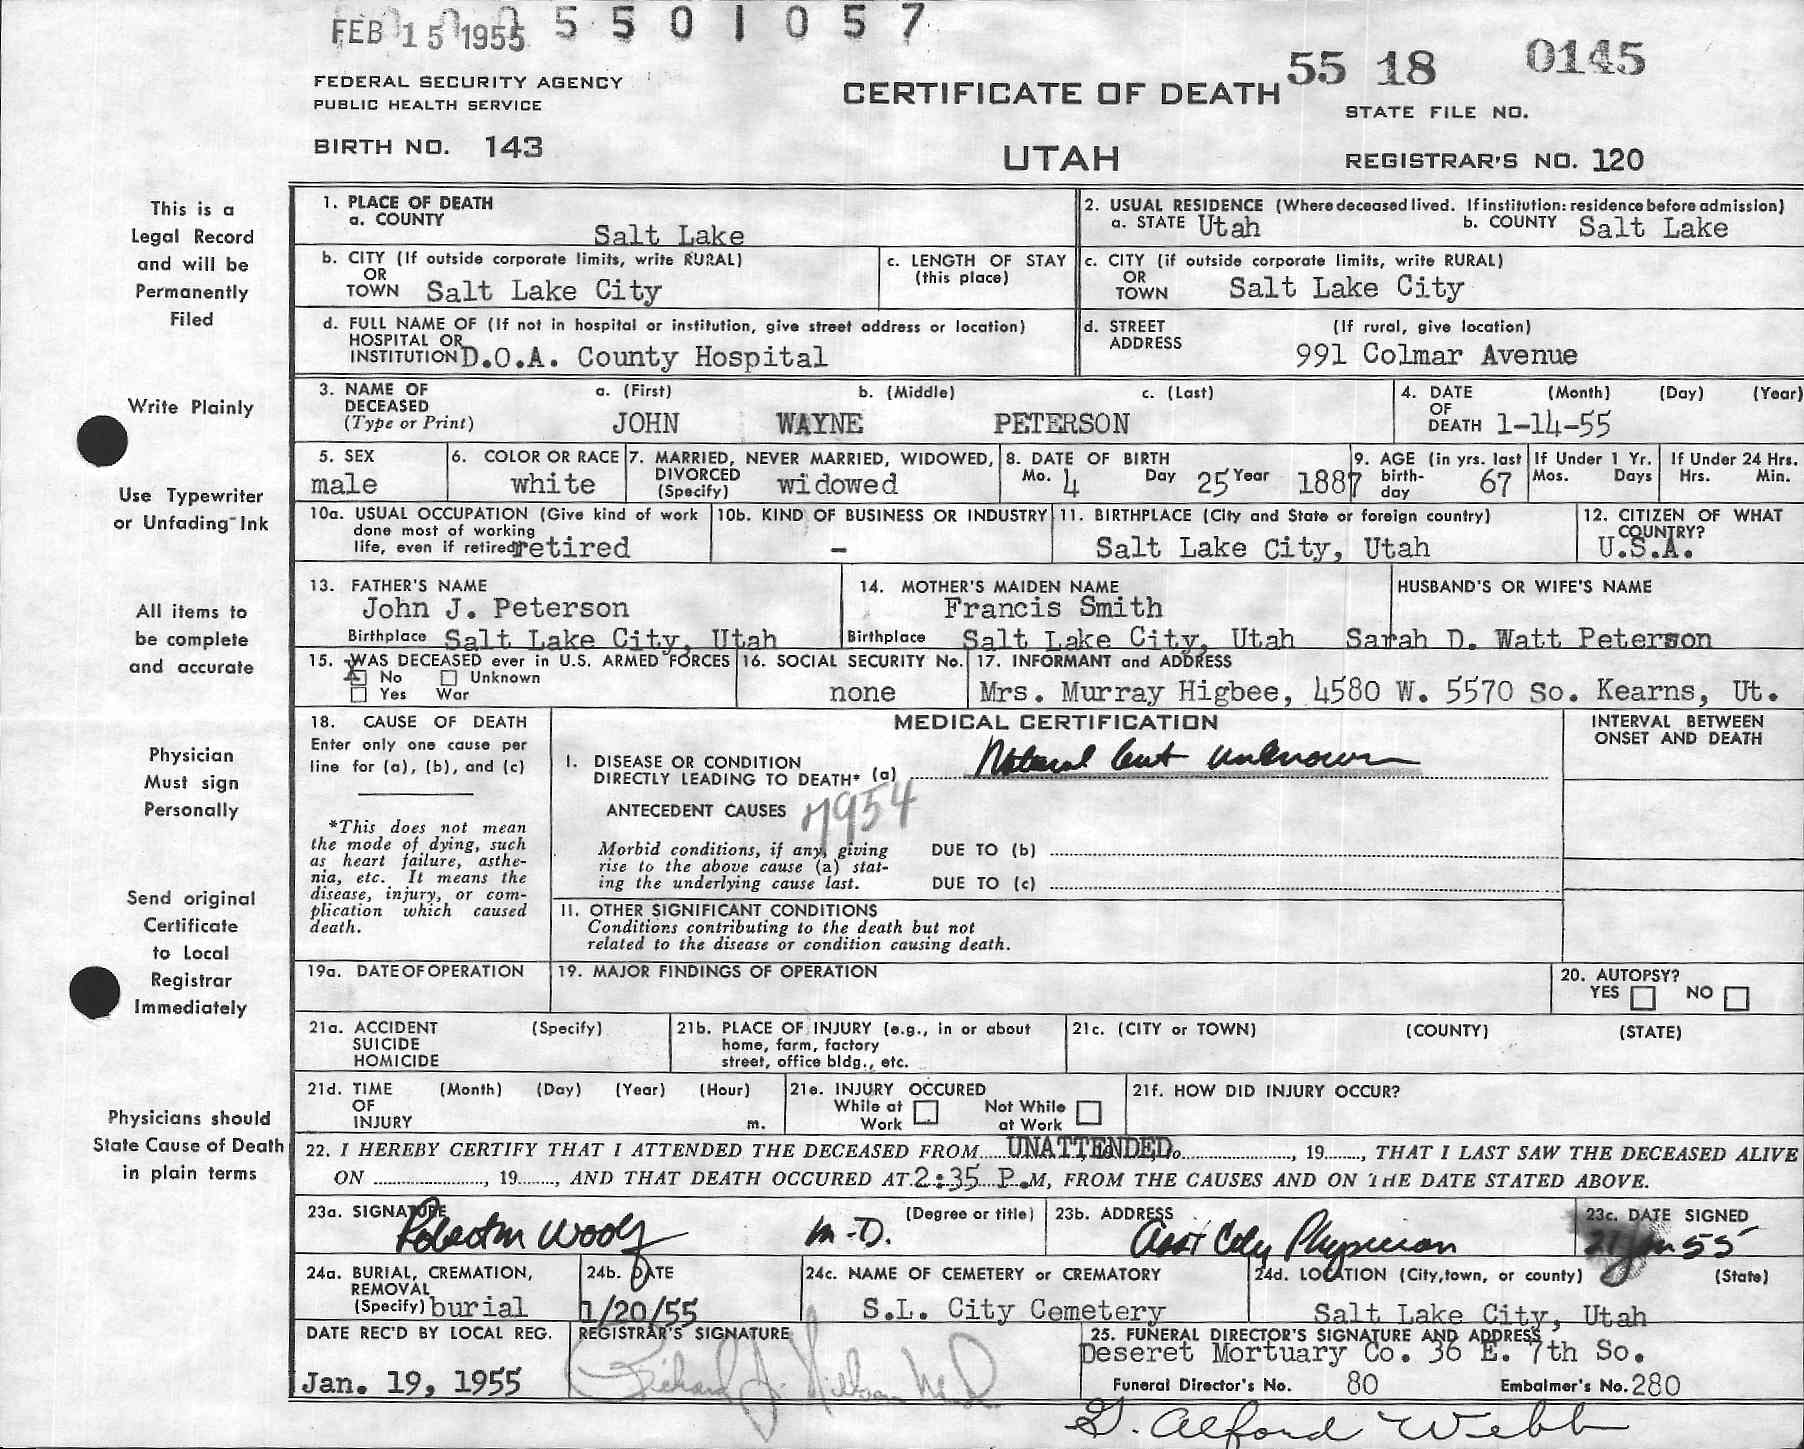 FEB 15 1955 5 5 0 1 0 5 7
55 18 0145
FEDERAL SECURITY AGENCY
PUBLIC HEALTH SERVICE
CERTIFICATE OF DEATH
STATE FILE NO.
BIRTH NO. 143
UTAH
REGISTRAR'S NO. 120
This is a
Legal Record
and will be
Permanently
Filed
Write Plainly
Use Typewriter
or Unfading Ink
All items to
be complete
and accurate
Physician
Must sign
Personally
Send original
Certificate
to Local
Registrar
Immediately
Physicians should
State Cause of Death
in plain terms
1. PLACE OF DEATH
a. COUNTY
Salt Lake
2. USUAL RESIDENCE (Where deceased lived. If institution: residence before admission)
a. STATE Utah b. COUNTY Salt Lake
b. CITY (If outside corporate limits, write RURAL)
OR
TOWN Salt Lake City
c. LENGTH OF STAY
(this place)
c. CITY (if outside corporate limits, write RURAL)
OR
TOWN Salt Lake City
d. FULL NAME OF (If not in hospital or institution, give street address or location)
HOSPITAL OR
INSTITUTION D.O.A. County Hospital
d. STREET (If rural, give location)
ADDRESS
991 Colmar Avenue
3. NAME OF a. (First) b. (Middle) c. (Last)
DECEASED
(Type or Print) JOHN WAYNE PETERSON
4. DATE (Month) (Day) (Year)
OF
DEATH 1-14-55
5. SEX
male
6. COLOR OR RACE
white
7. MARRIED, NEVER MARRIED, WIDOWED,
DIVORCED
(Specify) widowed
8. DATE OF BIRTH
Mo. 4 Day 25 Year 1887
9. AGE (in yrs. last
birth-
day 67
If Under 1 Yr.
Mos. Days
If Under 24 Hrs.
Hrs. Min.
10a. USUAL OCCUPATION (Give kind of work
done most of working
life, even if retired) retired
10b. KIND OF BUSINESS OR INDUSTRY
-
11. BIRTHPLACE (City and State or foreign country)
Salt Lake City, Utah
12. CITIZEN OF WHAT
COUNTRY?
U.S.A.
13. FATHER'S NAME
John J. Peterson
Birthplace Salt Lake City, Utah
14. MOTHER'S MAIDEN NAME
Francis Smith
Birthplace Salt Lake City, Utah
HUSBAND'S OR WIFE'S NAME
Sarah D. Watt Peterson
15. WAS DECEASED ever in U.S. ARMED FORCES
X No Unknown
Yes War
16. SOCIAL SECURITY No.
none
17. INFORMANT and ADDRESS
Mrs. Murray Higbee, 4580 W. 5570 So. Kearns, Ut.
18. CAUSE OF DEATH
Enter only one cause per
line for (a), (b), and (c)
*This does not mean
the mode of dying, such
as heart failure, asthe-
nia, etc. It means the
disease, injury, or com-
plication which caused
death.
MEDICAL CERTIFICATION
INTERVAL BETWEEN
ONSET AND DEATH
I. DISEASE OR CONDITION
DIRECTLY LEADING TO DEATH* (a) Natural but unknown
ANTECEDENT CAUSES 7954
Morbid conditions, if any, giving
rise to the above cause (a) stat-
ing the underlying cause last.
DUE TO (b)
DUE TO (c)
II. OTHER SIGNIFICANT CONDITIONS
Conditions contributing to the death but not
related to the disease or condition causing death.
19a. DATE OF OPERATION
19. MAJOR FINDINGS OF OPERATION
20. AUTOPSY?
YES NO
21a. ACCIDENT (Specify)
SUICIDE
HOMICIDE
21b. PLACE OF INJURY (e.g., in or about
home, farm, factory
street, office bldg., etc.
21c. (CITY or TOWN) (COUNTY) (STATE)
21d. TIME (Month) (Day) (Year) (Hour)
OF
INJURY m.
21e. INJURY OCCURED
While at Not While
Work at Work
21f. HOW DID INJURY OCCUR?
22. I HEREBY CERTIFY THAT I ATTENDED THE DECEASED FROM UNATTENDED, 19......, THAT I LAST SAW THE DECEASED ALIVE
ON ..................., 19......, AND THAT DEATH OCCURED AT 2:35 P.M, FROM THE CAUSES AND ON THE DATE STATED ABOVE.
23a. SIGNATURE (Degree or title)
M.D.
23b. ADDRESS
Asst City Physician
23c. DATE SIGNED
21 Jan 55
24a. BURIAL, CREMATION,
REMOVAL
(Specify) burial
24b. DATE
1/20/55
24c. NAME OF CEMETERY or CREMATORY
S.L. City Cemetery
24d. LOCATION (City, town, or county) (State)
Salt Lake City, Utah
DATE REC'D BY LOCAL REG.
Jan. 19, 1955
REGISTRAR'S SIGNATURE
25. FUNERAL DIRECTOR'S SIGNATURE AND ADDRESS
Deseret Mortuary Co. 36 E. 7th So.
Funeral Director's No. 80 Embalmer's No. 280
G. Alford Webb